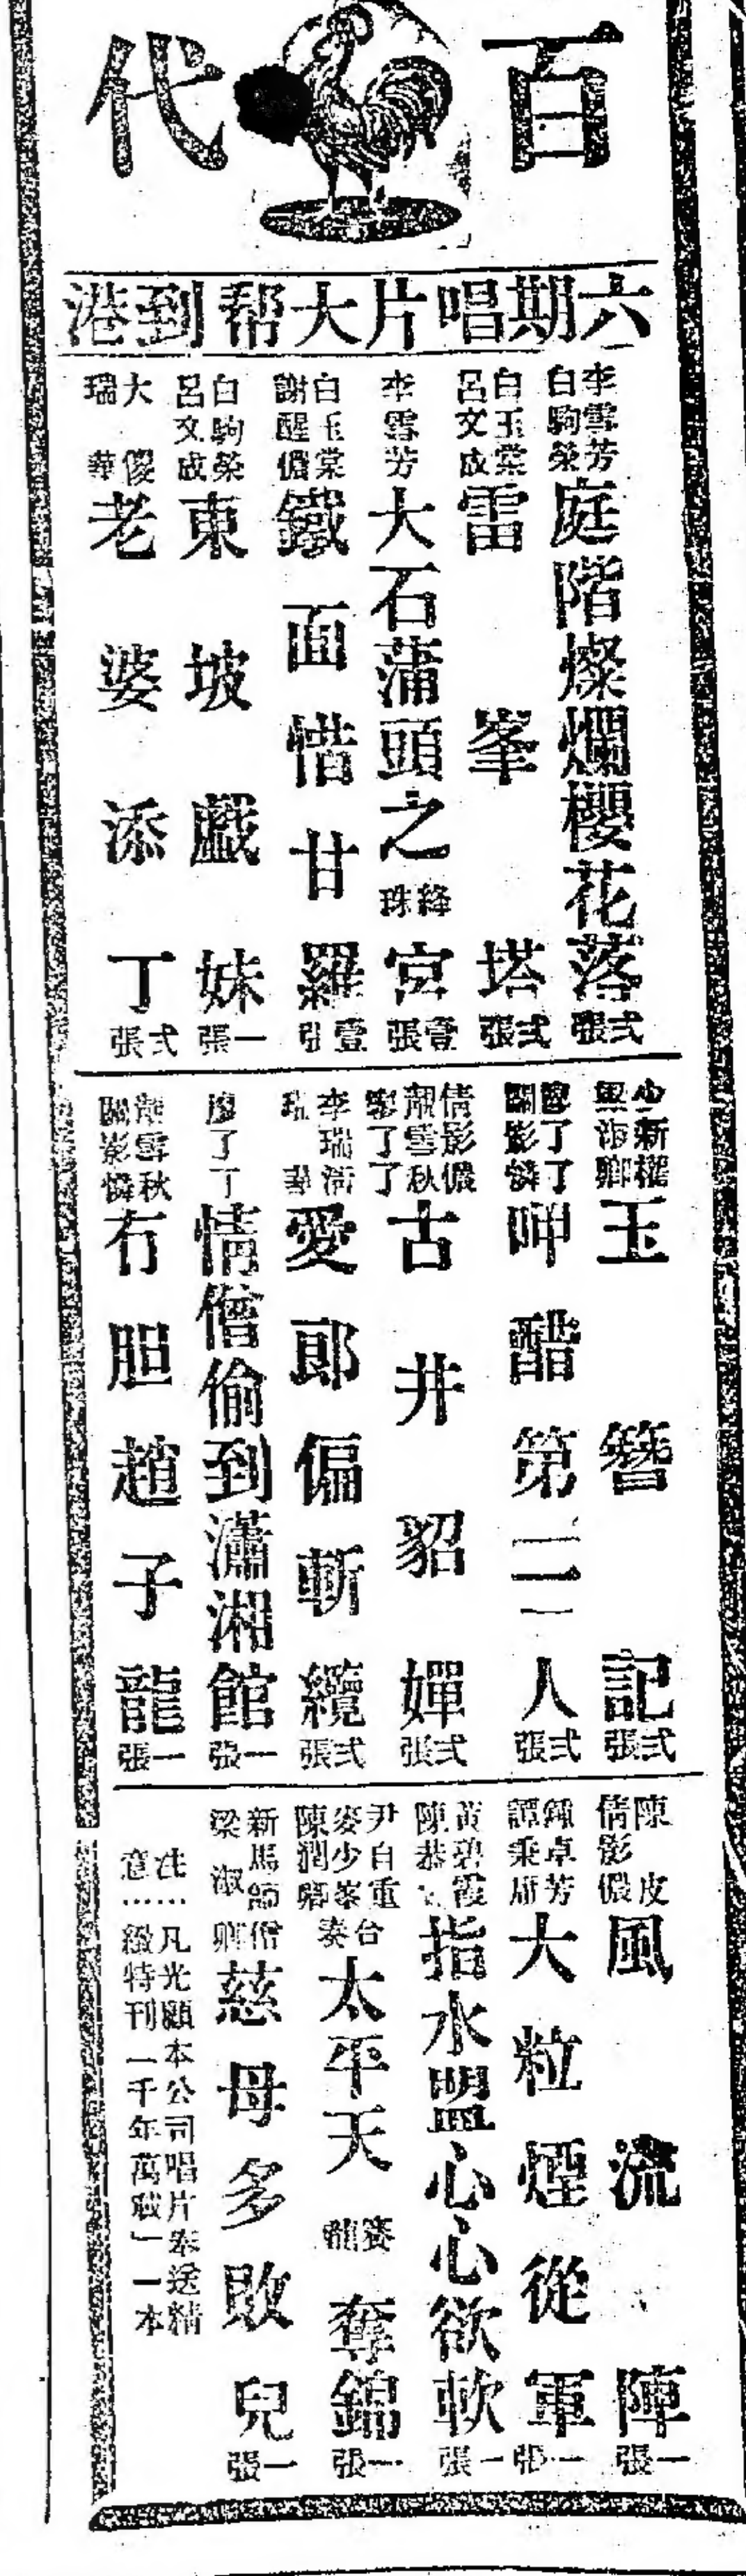 百代
六期唱片大帮到港
李雪芳 白駒榮 庭階燦爛櫻花落 弍張
白玉棠 呂文成 雷峯塔 弍張
李雪芳 大石蒲頭之絳珠宮 壹張
白玉棠 謝醒儂 鐵面惜甘羅 壹張
白駒榮 呂文成 東坡戲妹 一張
大傻 瑞華 老婆添丁 弍張
少新權 淑卿 玉簪記 弍張
廖了了 關影憐 呷醋第二人 弍張
倩影儂 靚雪秋 廖了了 古井貂嬋 弍張
李瑞清 瑞 愛郎偏斬纜 弍張
廖了了 情僧偷到瀟湘館 一張
靚雪秋 關影憐 冇胆趙子龍 一張
陳皮 倩影儂 風流陣 一張
鍾卓芳 譚秉庸 大粒煙從軍 一張
黃碧霞 陳恭 指水盟心心欲軟 一張
尹自重 麥少峯 陳潤卿 合奏 太平天 賽龍奪錦 一張
新馬師僧 梁淑卿 慈母多敗兒 一張
注意……凡光顧本公司唱片奉送精緻特刊「千年萬歲」一本